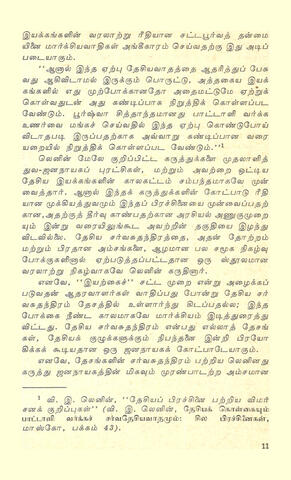 இயக்கங்களின் வரலாற்று ரீதியான சட்டபூர்வத் தன்மை
யினை மார்க்சியவாதிகள் அங்கீகாரம் செய்வதற்கு இது அடிப்
படையாகும்.
"ஆனால் இந்த ஏற்பு தேசியவாதத்தை ஆதரித்துப் பேசு
வது ஆகிவிடாமல் இருக்கும் பொருட்டு, அத்தகைய இயக்
கங்களில் எது முற்போக்கானதோ அதைமட்டுமே ஏற்றுக்
கொள்வதுடன் அது கண்டிப்பாக நிறுத்திக் கொள்ளப்பட
வேண்டும். பூர்ஷ்வா சித்தாந்தமானது பாட்டாளி வர்க்க
உணர்வை மங்கச் செய்வதில் இந்த ஏற்பு கொண்டுபோய்
விடாதபடி இருப்பதற்காக அவ்வாறு கண்டிப்பான வரை
யறையில் நிறுத்திக் கொள்ளப்பட வேண்டும்."¹
லெனின் மேலே குறிப்பிட்ட கருத்துக்களை முதலாளித்
துவ-ஜனநாயகப் புரட்சிகள், மற்றும் அவற்றை ஒட்டிய
தேசிய இயக்கங்களின் காலகட்டம் சம்பந்தமாகவே முன்
வைத்தார். ஆனால் இந்தக் கருத்துக்களின் கோட்பாட்டு ரீதி
யான முக்கியத்துவமும் இந்தப் பிரச்சினையை முன்வைப்பதற்
கான,அதற்குத் தீர்வு காண்பதற்கான அரசியல் அணுகுமுறை
யும் இன்று வரையிலுங்கூட அவற்றின் தகுதியை இழந்து
விடவில்லை. தேசிய சர்வசுதந்திரத்தை, அதன் தோற்றம்
மற்றும் பிரதான அம்சங்களை, ஆழமான பல சமூக நிகழ்வு
போக்குகளினால் ஏற்படுத்தப்பட்டதான ஒரு ஸ்தூலமான
வரலாற்று நிகழ்வாகவே லெனின் கருதினார்.
எனவே, "இயற்கைச்" சட்ட முறை என்று அழைக்கப்
படுவதன் ஆதரவாளர்கள் வாதிப்பது போன்று தேசிய சர்
வசுதந்திரம் தேசத்தில் உள்ளார்ந்து கிடப்பதல்ல; இந்த
போக்கை நீண்ட காலமாகவே மார்க்சியம் இடித்துரைத்து
விட்டது. தேசிய சர்வசுதந்திரம் என்பது எல்லாத் தேசங்
கள், தேசியக் குழுக்களுக்கும் நிபந்தனை இன்றி பிரயோ
கிக்கக் கூடியதான ஒரு ஜனநாயகக் கோட்பாடேயாகும்.
எனவே, தேசங்களின் சர்வசுதந்திரம் பற்றிய லெனினது
கருத்து ஜனநாயகத்தின் மிகவும் முரண்பாடற்ற அம்சமான
¹ வி. இ. லெனின், "தேசியப் பிரச்சினை பற்றிய விமர்
சனக் குறிப்புகள்" (வி. இ. லெனின், தேசியக் கொள்கையும்
பாட்டாளி வர்க்க சர்வதேசியவாதமும்: சில பிரச்சினைகள்,
மாஸ்கோ, பக்கம் 43).
11